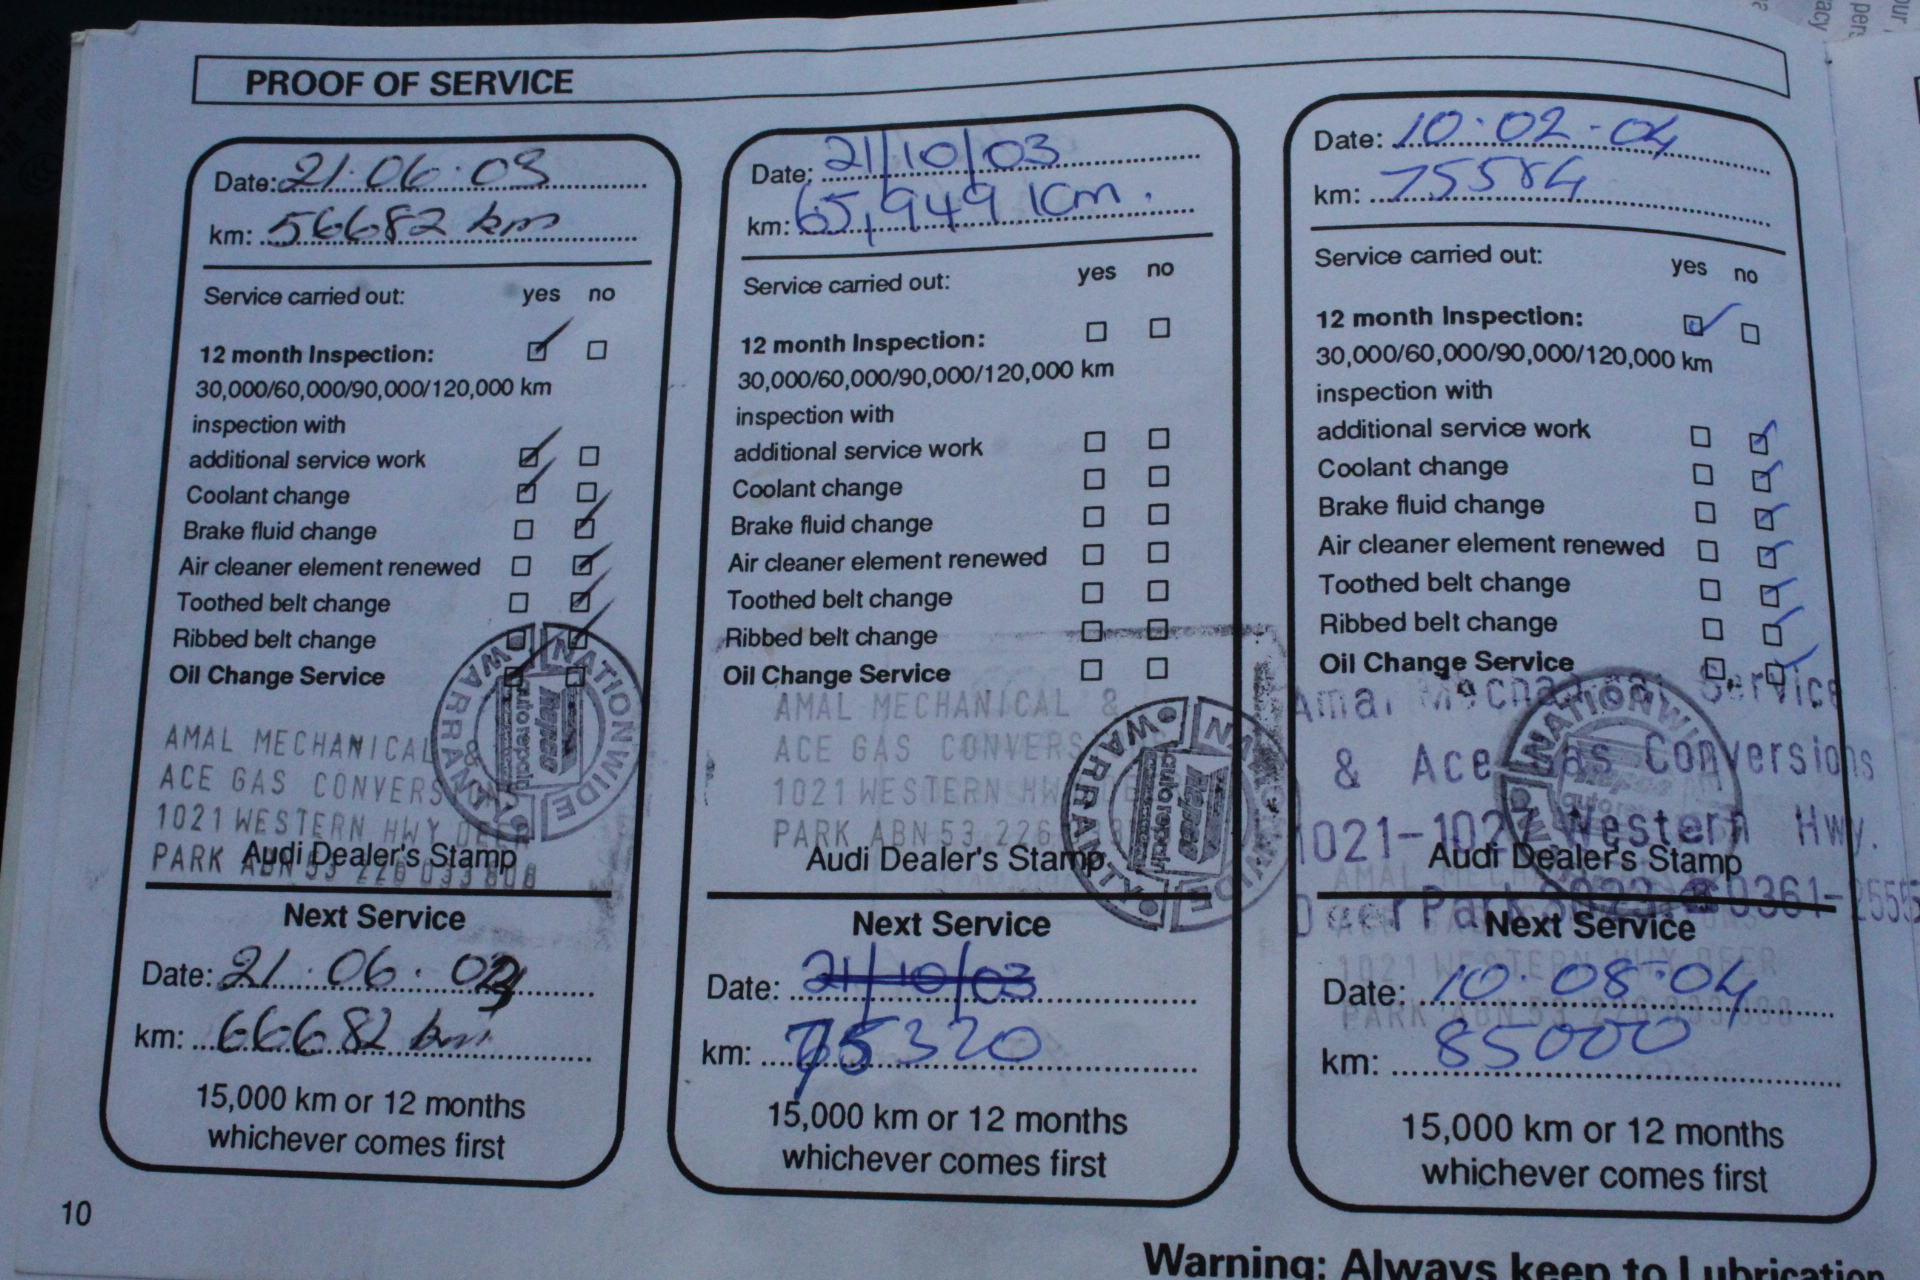 PROOF OF SERVICE
Date: 21.06.03
km: 56682 km
Service carried out: yes no
12 month Inspection:
30,000/60,000/90,000/120,000 km
inspection with
additional service work
Coolant change
Brake fluid change
Air cleaner element renewed
Toothed belt change
Ribbed belt change
Oil Change Service
NATIONWIDE WARRANTY
Repco
auto repair
AMAL MECHANICAL &
ACE GAS CONVERS
1021 WESTERN HWY DEER
PARK ABN 53 226 033 808
Audi Dealer's Stamp
Next Service
Date: 21.06.03
km: 66682 km
15,000 km or 12 months
whichever comes first
Date: 21/10/03
km: 65,949 km.
Service carried out: yes no
12 month Inspection:
30,000/60,000/90,000/120,000 km
inspection with
additional service work
Coolant change
Brake fluid change
Air cleaner element renewed
Toothed belt change
Ribbed belt change
Oil Change Service
AMAL MECHANICAL &
ACE GAS CONVERS
1021 WESTERN HWY
PARK ABN 53 226
NATIONWIDE WARRANTY
Repco
auto repair
Audi Dealer's Stamp
Next Service
Date: 21/10/03
km: 75320
15,000 km or 12 months
whichever comes first
Date: 10.02.04
km: 75584
Service carried out: yes no
12 month Inspection:
30,000/60,000/90,000/120,000 km
inspection with
additional service work
Coolant change
Brake fluid change
Air cleaner element renewed
Toothed belt change
Ribbed belt change
Oil Change Service
Amal Mechanical Service
& Ace Gas Conversions
1021-1027 Western Hwy.
Audi Dealer's Stamp
Deer Park 3023
Next Service
1021 WESTERN HWY DEER
Date: 10.08.04
PARK ABN 53 226 033 808
km: 85000
15,000 km or 12 months
whichever comes first
10
Warning: Always keep to Lubrication